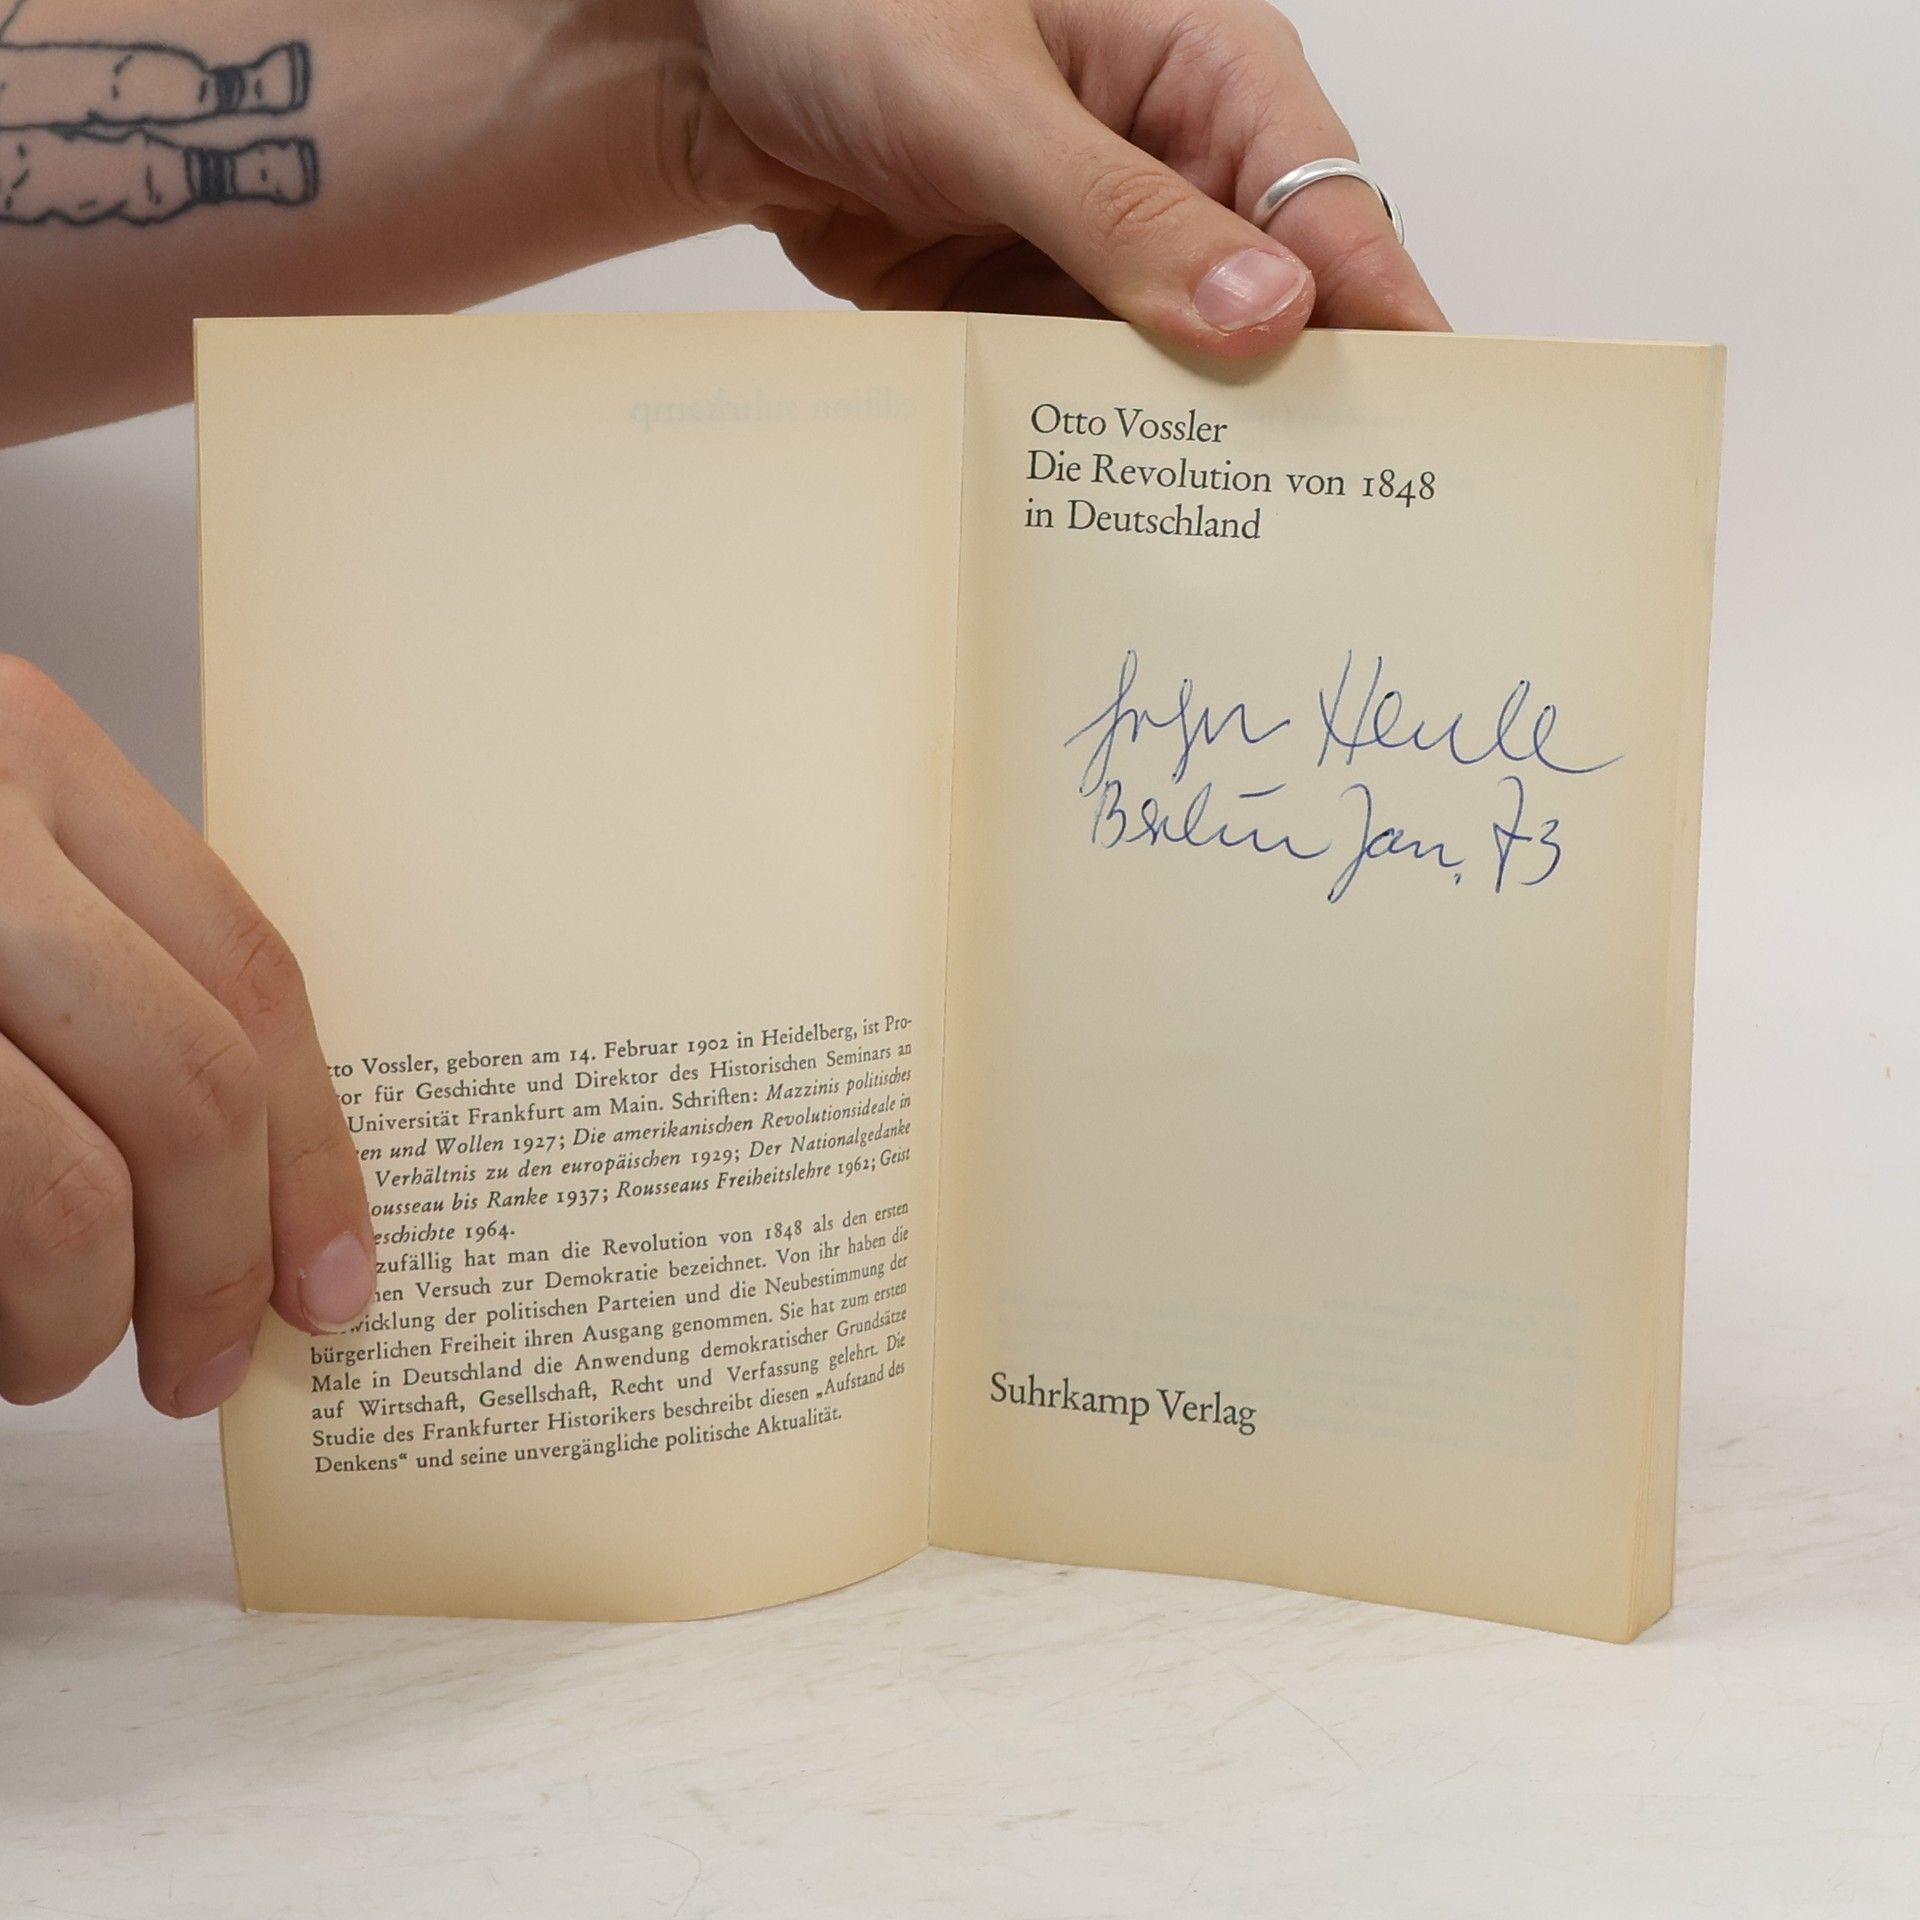 edition suhrkamp
Vossler, geboren am 14. Februar 1902 in Heidelberg, ist Pro-
für Geschichte und Direktor des Historischen Seminars an
Universität Frankfurt am Main. Schriften: Mazzinis politisches
und Wollen 1927; Die amerikanischen Revolutionsideale in
Verhältnis zu den europäischen 1929; Der Nationalgedanke
bis Ranke 1937; Rousseaus Freiheitslehre 1962; Geist
1964.
zufällig hat man die Revolution von 1848 als den ersten
Versuch zur Demokratie bezeichnet. Von ihr haben die
der politischen Parteien und die Neubestimmung der
bürgerlichen Freiheit ihren Ausgang genommen. Sie hat zum ersten
Male in Deutschland die Anwendung demokratischer Grundsätze
auf Wirtschaft, Gesellschaft, Recht und Verfassung gelehrt. Die
Studie des Frankfurter Historikers beschreibt diesen „Aufstand des
Denkens“ und seine unvergängliche politische Aktualität.
Otto Vossler
Die Revolution von 1848
in Deutschland
Berlin Jan. 73
Suhrkamp Verlag